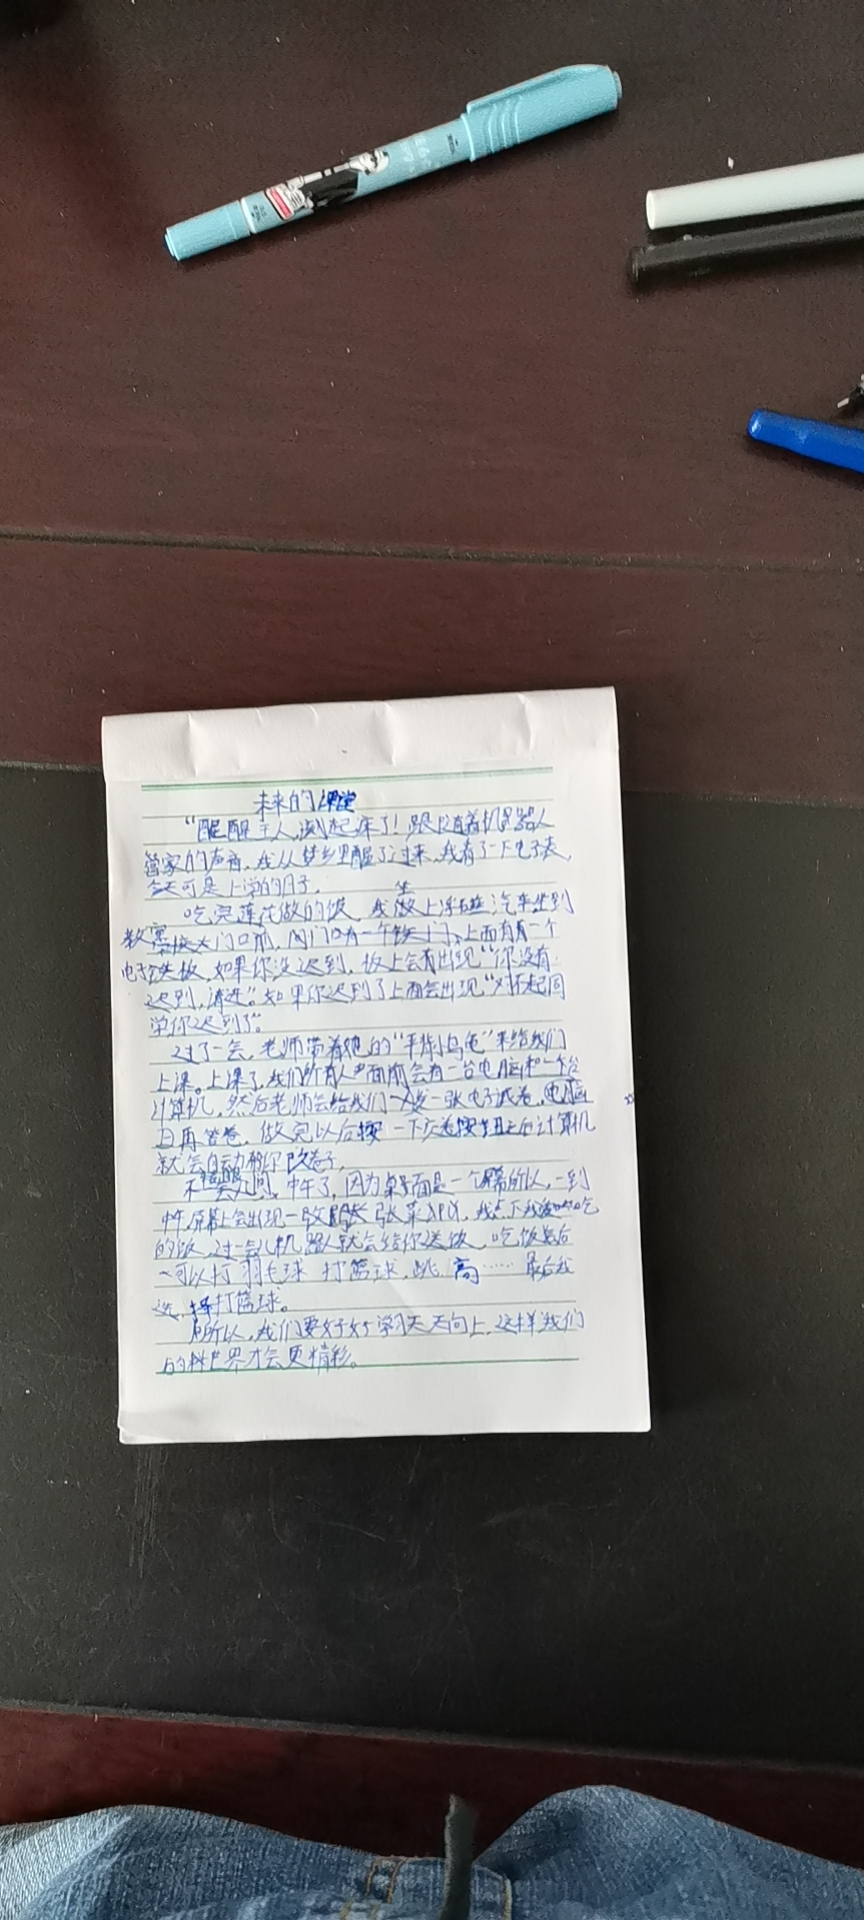 未来的课堂
“醒醒主人,起床了!跟随着机器人
管家的声音,我从梦乡里醒了过来,我看了一下电子表,
今天可是上学的日子。
吃完莲花做的饭,我坐上浮磁汽车坐到
教室大门口前,门口有一个铁门,上面有一个
电子铁板,如果你没迟到,板上会出现“你没有
迟到,请进”。如果你迟到了上面会出现“对不起同
学你迟到了”。
过了一会,老师带着她的“平板乌龟”来给我们
上课。上课了,我们所有人面前会有一台电脑和一台
计算机,然后老师会给我们一人发一张电子试卷,
再答卷,做完以后按一下计算机
就会自动帮你改卷子。
不知中午了,因为桌面是一个屏幕所以,一到
中午屏幕上会出现一张菜单,我点下我吃
的饭,过一会儿机器人就会给你送饭,吃饭后
可以打羽毛球 打篮球,跳高……最后我
选择打篮球。
所以,我们要好好学习天天向上,这样我们
的世界才会更精彩。